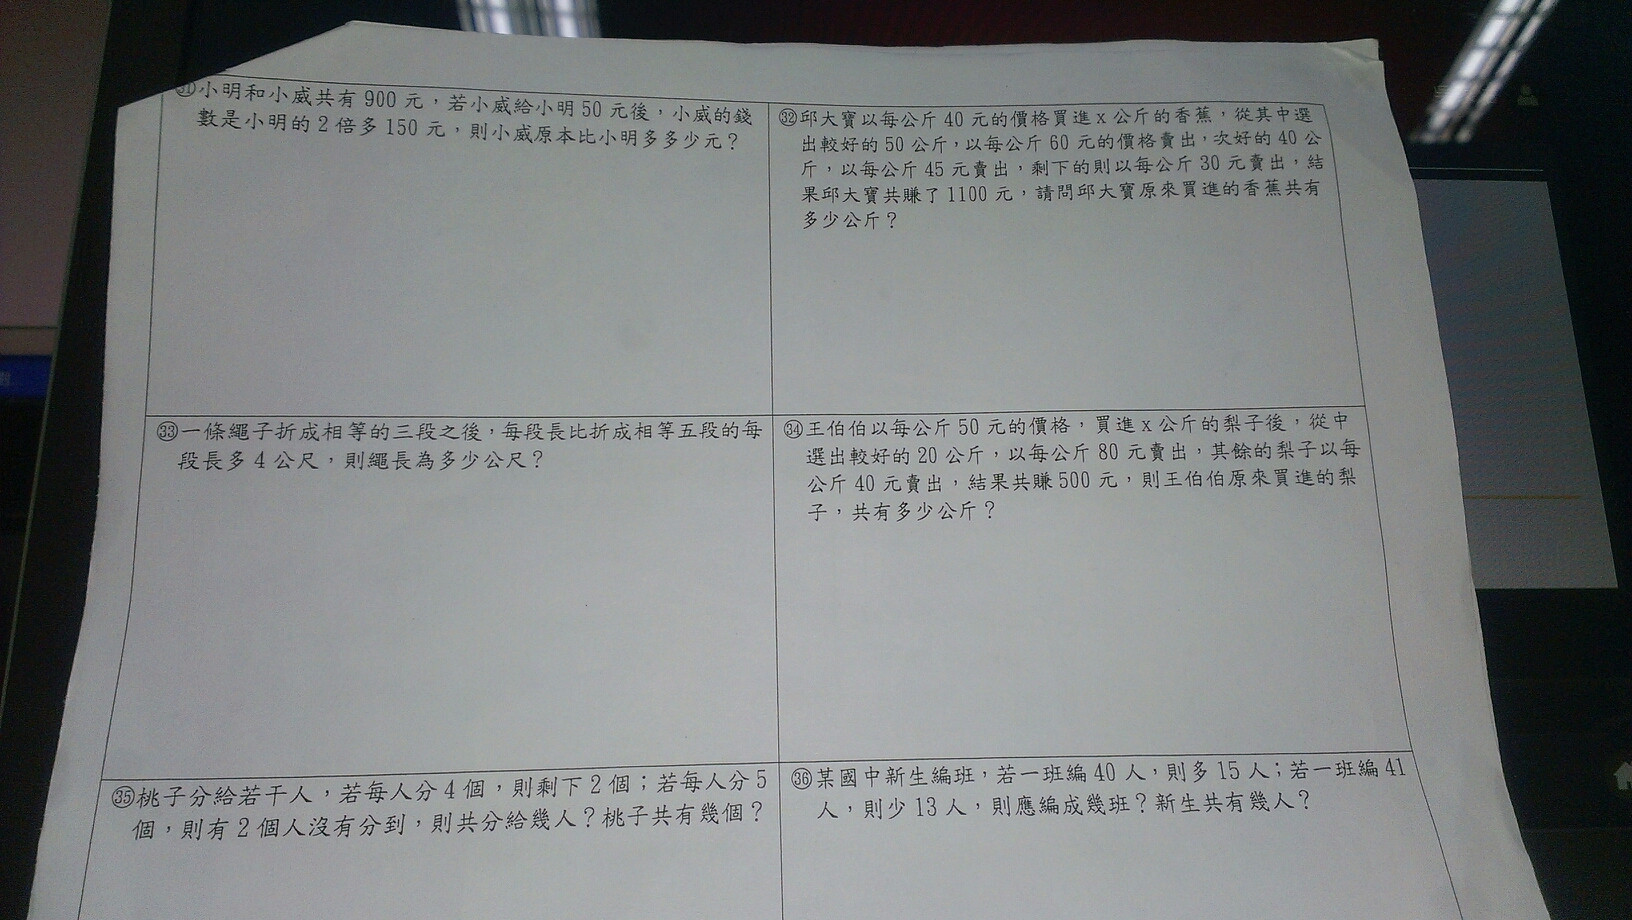 ㉛小明和小威共有 900 元，若小威給小明 50 元後，小威的錢
數是小明的 2 倍多 150 元，則小威原本比小明多多少元？
㉜邱大寶以每公斤 40 元的價格買進 x 公斤的香蕉，從其中選
出較好的 50 公斤，以每公斤 60 元的價格賣出，次好的 40 公
斤，以每公斤 45 元賣出，剩下的則以每公斤 30 元賣出，結
果邱大寶共賺了 1100 元，請問邱大寶原來買進的香蕉共有
多少公斤？
㉝一條繩子折成相等的三段之後，每段長比折成相等五段的每
段長多 4 公尺，則繩長為多少公尺？
㉞王伯伯以每公斤 50 元的價格，買進 x 公斤的梨子後，從中
選出較好的 20 公斤，以每公斤 80 元賣出，其餘的梨子以每
公斤 40 元賣出，結果共賺 500 元，則王伯伯原來買進的梨
子，共有多少公斤？
㉟桃子分給若干人，若每人分 4 個，則剩下 2 個；若每人分 5
個，則有 2 個人沒有分到，則共分給幾人？桃子共有幾個？
㊱某國中新生編班，若一班編 40 人，則多 15 人；若一班編 41
人，則少 13 人，則應編成幾班？新生共有幾人？